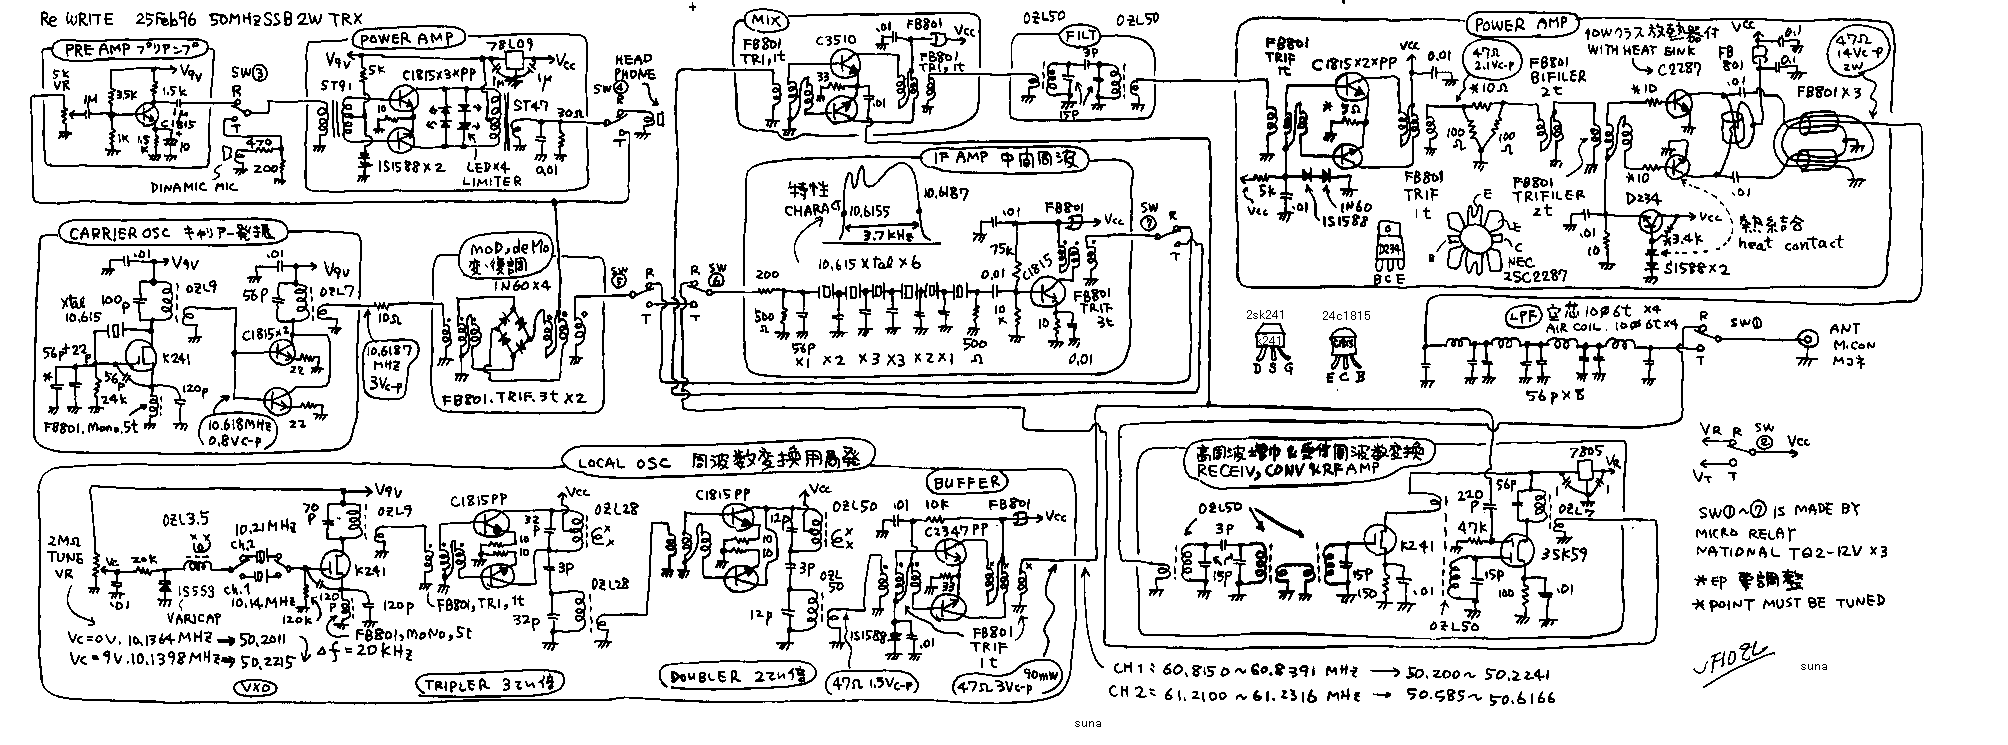 Re WRITE 25Feb96 50MHz SSB 2W TRX
PRE AMP プリアンプ
5K
VR
1M
3.5K
1.5K
V9V
1K
C1815
10
SW③
R
T
470
200
DINAMIC MIC
POWER AMP
V9V
5K
78L09
Vcc
C1815×3×PP
ST91
10
1M
1M
ST47
30Ω
0.01
1S1588×2
LED×4
LIMITER
HEAD
PHONE
SW④
R
T
MIX
FB801
TRI, 1t
C3510
33
.01
.01
FB801
Vcc
FB801
TRI, 1t
OZL50
OZL50
FILT
3P
15P
POWER AMP
FB801
TRIF
1t
C1815×2×PP
Vcc
0.01
47Ω
2.1Vc-p
*10Ω
100
Ω
100
Ω
FB801
BIFILER
2t
10Wクラス放熱器付
WITH HEAT SINK
C2287
Vcc
0.1
FB
801
0.1
.01
47Ω
14Vc-p
2W
FB801×3
*10
*10
.01
5K
Vcc
.01
1N60
1S1588
FB801
TRIF
1t
FB801
TRIFILER
2t
D234
Vcc
*3.4K
.01
10
S1588×2
熱結合
heat contact
D234
B C E
E
E
C
B
NEC
2SC2287
CARRIER OSC キャリアー発振
.01
V9V
.01
V9V
xtal
10.615
100P
OZL9
56P
OZL7
56P+22P
*
K241
C1815×2
22
22
56P
24K
120P
FB801.Mono.5t
10.618MHz
0.8Vc-p
10Ω
10.6187
MHz
3Vc-p
MOD, deMo
変・復調
1N60×4
FB801.TRIF.3t×2
SW⑤
R
T
R
T
SW⑥
IF AMP 中間周波
特性
CHARA
10.6155
10.6187
3.7KHz
10.615 xtal×6
200
500
Ω
56P
×1 ×2 ×3 ×3 ×2 ×1
500
Ω
.01
75K
FB801
Vcc
0.01
C1815
10
K
10
FB801
TRIF
3t
0.01
SW⑦
R
T
2sk241
K241
D S G
24c1815
C1815
E C B
LPF 空芯 10φ6t ×4
AIR COIL. 10φ6t×4
56P×8
R
SW①
T
ANT
M.CON
Mコネ
LOCAL OSC 周波数変換用局発
V9V
70
P
OZL9
2MΩ
TUNE
VR
Vc
.01
20K
OZL3.5
10.21MHz
ch.2
ch.1
10.14MHz
1S553
VARICAP
K241
120
P
120K
120P
FB801, Mono, 5t
Vc=0V. 10.1364MHz → 50.2011
Vc=9V. 10.1398MHz → 50.2215
Δf=20KHz
VXO
C1815PP
10
10
FB801, TRI, 1t
Vcc
32P
OZL28
3P
OZL28
32P
TRIPLER 3てい倍
C1815PP
10
10
Vcc
12P
OZL50
3P
OZL
50
12P
DOUBLER 2てい倍
47Ω 1.5Vc-p
BUFFER
.01
10K
FB801
Vcc
C2347PP
33
1S1588
.01
FB801
TRIF
1t
47Ω 3Vc-p
90mW
高周波増巾&受信周波数変換
RECEIV, CONV & RF AMP
OZL50
3P
15P
15P
15P
K241
150
.01
OZL50
220
P
47K
56P
.1
7805
VR
.1
OZL7
3SK59
15P
100
.01
CH1: 60.8150～60.8391 MHz → 50.200～50.2241
CH2: 61.2100～61.2316 MHz → 50.585～50.6166
VR
R
SW
②
Vcc
VT
T
SW①～⑦ IS MADE BY
MICRO RELAY
NATIONAL TQ2-12V ×3
*印 要調整
*POINT MUST BE TUNED
suna
suna